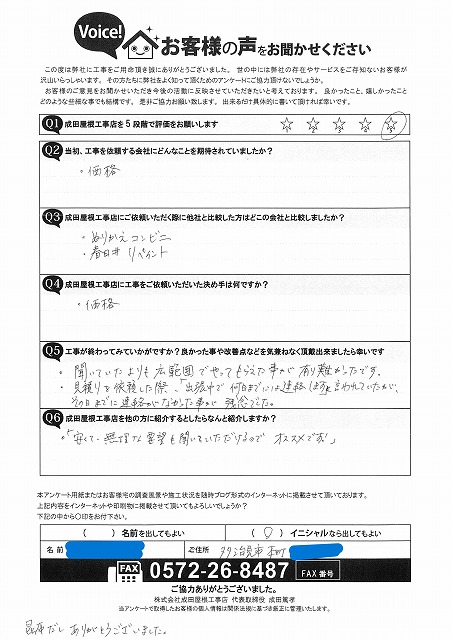 Voice!
お客様の声をお聞かせください
この度は弊社に工事をご用命頂き誠にありがとうございました。世の中には弊社の存在やサービスをご存知ないお客様が
沢山いらっしゃいます。その方たちに弊社をよく知って頂くためのアンケートにご協力頂けないでしょうか。
お客様のご意見をお聞かせいただき今後の活動に反映させていただきたいと考えております。良かったこと、嬉しかったこと
どのような些細な事でも結構です。是非ご協力お願い致します。出来るだけ具体的に書いて頂ければ幸いです。
Q1 成田屋根工事店を5段階で評価をお願いします ☆ ☆ ☆ ☆ ☆
Q2 当初、工事を依頼する会社にどんなことを期待されていましたか?
・価格
Q3 成田屋根工事店にご依頼いただく際に他社と比較した方はどこの会社と比較しましたか?
・ぬりかえコンビニ
・春日井リペイント
Q4 成田屋根工事店に工事をご依頼いただいた決め手は何ですか?
・価格
Q5 工事が終わってみていかがですか?良かった事や改善点などを気兼ねなく頂戴出来ましたら幸いです
・聞いていたよりも広範囲でやってもらえた事が有り難かったです。
・見積りを依頼した際、「出張中で何日までには連絡します」と言われていたが、
その日までに連絡がなかった事が残念でした。
Q6 成田屋根工事店を他の方に紹介するとしたらなんと紹介しますか?
・「安くて、無理な要望も聞いていただけるのでオススメです!」
本アンケート用紙またはお客様宅の調査風景や施工状況を随時ブログ形式のインターネットに掲載させて頂いております。
上記内容をインターネットや印刷物に掲載させて頂いてもよろしいでしょうか?
下記の中から〇印をお付下さい。
( )名前を出してもよい (○)イニシャルなら出してもよい
名前 ご住所 多治見市本町
FAX 0572-26-8487 FAX番号
ご協力ありがとうございました。
株式会社成田屋根工事店 代表取締役 成田篤孝
当アンケートで取得したお客様の個人情報は関係法規に基づき厳正に管理いたします。
ありがとうございました。